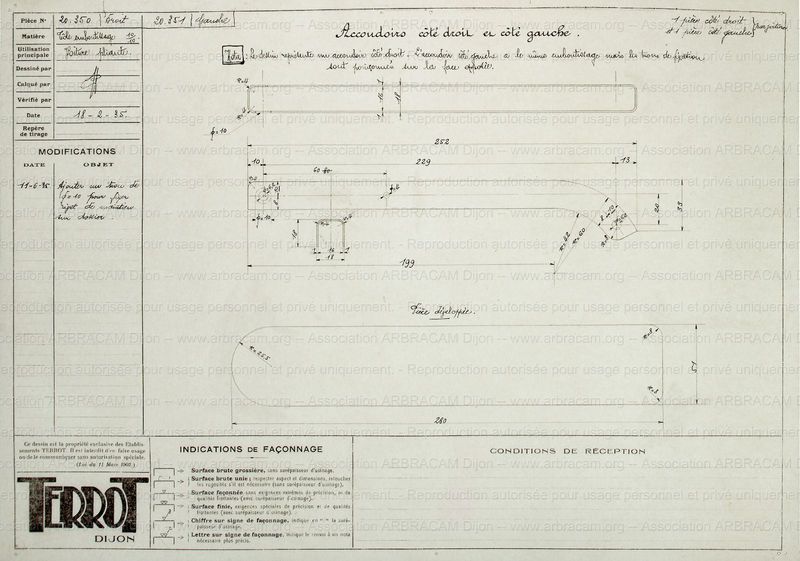 Pièce N° 20.350 Droit 20.351 Gauche
Matière Tôle emboutissage 10/10
Utilisation principale Voiture Pliante
Dessiné par
Calqué par
Vérifié par
Date 18-2-35.
Repère de tirage
MODIFICATIONS
DATE OBJET
11-6-35 Ajouter un trou de
φ=10 pour fixer
sur dossier.
Accoudoirs côté droit et côté gauche.
1 pièce côté droit
et 1 pièce côté gauche
Nota: Le dessin représente un accoudoir côté droit. L'accoudoir côté gauche a le même emboutissage mais les trous de fixation
sont poinçonnés sur la face opposée.
φ=10
16
18
252
10 229 13
60
18
16
18
20
33
199
Pièce développée.
R=25,5
51
280
Ce dessin est la propriété exclusive des Etablis-
sements TERROT. Il est interdit d'en faire usage
ou de le communiquer sans autorisation spéciale.
(Loi du 11 Mars 1902.)
TERROT
DIJON
INDICATIONS DE FAÇONNAGE
Surface brute grossière, sans surépaisseur d'usinage.
Surface brute unie; respecter aspect et dimensions, retoucher
les rugosités s'il est nécessaire (sans surépaisseur d'usinage).
Surface façonnée sans exigences extrêmes de précision, ou de
qualités frottantes (avec surépaisseur d'usinage).
Surface finie, exigences spéciales de précision et de qualités
frottantes (avec surépaisseur d'usinage).
Chiffre sur signe de façonnage, indique en m/m la suré-
paisseur d'usinage.
Lettre sur signe de façonnage, indique le renvoi à un nota
nécessaire plus précis.
CONDITIONS DE RÉCEPTION
Association ARBRACAM Dijon -- www.arbracam.org -- Association ARBRACAM Dijon -- www.arbracam.org
Reproduction autorisée pour usage personnel et privé uniquement.